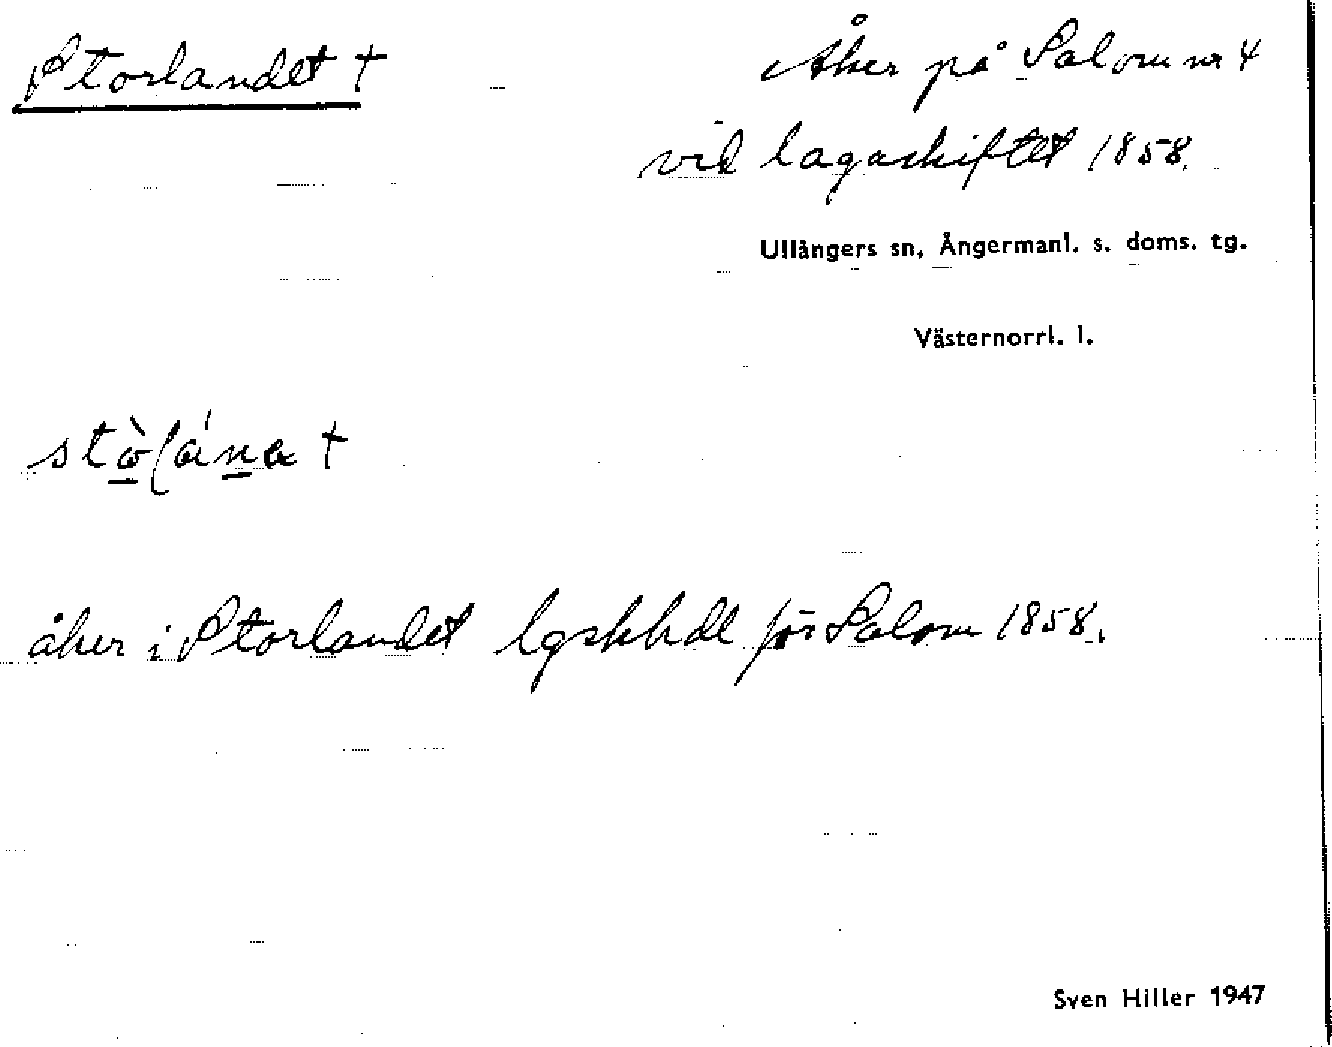 Storlandet †
Åker på Salom nr 4
vid lagaskiftet 1858.
Ullångers sn, Ångermanl. s. doms. tg.
Västernorrl. l.
åker i Storlandet lgskhdl för Salom 1858.
Sven Hiller 1947